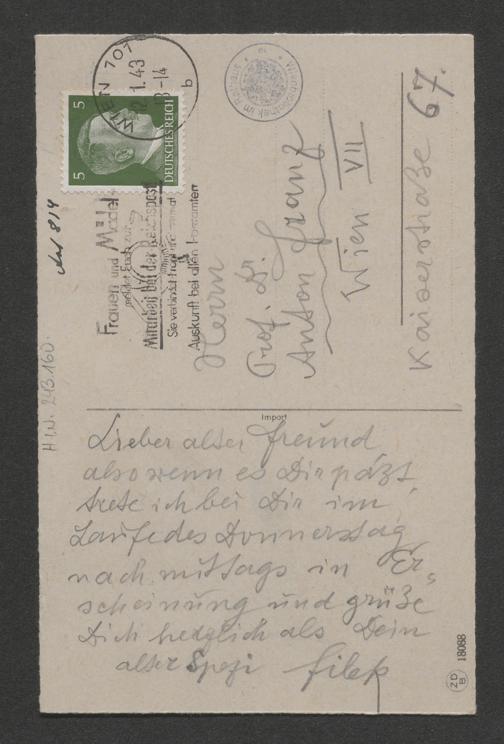 WIEN 707
1.43
-14
b
5
5
DEUTSCHES REICH
Frauen und Mädel
meldet Euch
Mitarbeit bei der Reichspost
Sie verbindet Front und Heimat
Auskunft bei allen Postämtern
H.I.N. 243.160.
Herrn
Prof. Dr.
Anton Franz
Wien VII
Kaiserstraße 67.
Import
Lieber alter Freund
also wenn es Dir paßt,
trete ich bei Dir im
Laufe des Donnerstag
nachmittags in Er-
scheinung und grüße
Dich herzlich als Dein
alter Spezi Filek
ZD
B
18088